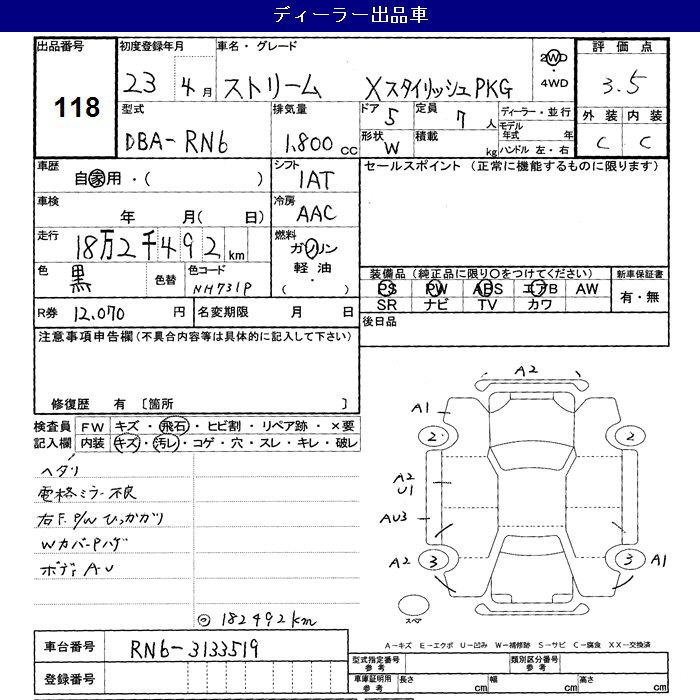 ディーラー出品車
出品番号 118
初度登録年月 23 4月
車名・グレード ストリーム XスタイリッシュPKG
2WD
・
4WD
評価点 3.5
外装 内装
C C
型式 DBA-RN6
排気量 1,800 cc
ドア 5
定員 7 人
形状 W
積載 kg
ディーラー・並行
モデル年式 年
ハンドル 左・右
車歴 自家用・( )
シフト IAT
セールスポイント (正常に機能するものに限ります)
車検 年 月( 日)
冷房 AAC
走行 18万2千492km
燃料 ガソリン
軽油・
( )
色 黒 色替
色コード NH731P
装備品(純正品に限り○をつけてください)
PS PW ABS エアB AW
SR ナビ TV カワ
新車保証書
有・無
R券 12,070 円
名変期限 月 日
後日品
注意事項申告欄(不具合内容等は具体的に記入して下さい)
修復歴 有 〔箇所 〕
検査員記入欄
FW キズ・飛石・ヒビ割・リペア跡・×要
内装 キズ・汚レ・コゲ・穴・スレ・キレ・破レ
ヘタリ
電格ミラー不良
右F.P/Wひっかかり
WカバーPハゲ
ボディAU
◎182492km
A2
A1
2 2
A2
U1
AU3
A2 3 3 A1
スペア
A-キズ E-エクボ U-凹み W-補修跡 S-サビ C-腐食 XX-交換済
車台番号 RN6-3133519
登録番号
型式指定番号 参考
類別区分番号 参考
車庫証明用 参考 長さ cm 幅 cm 高さ cm